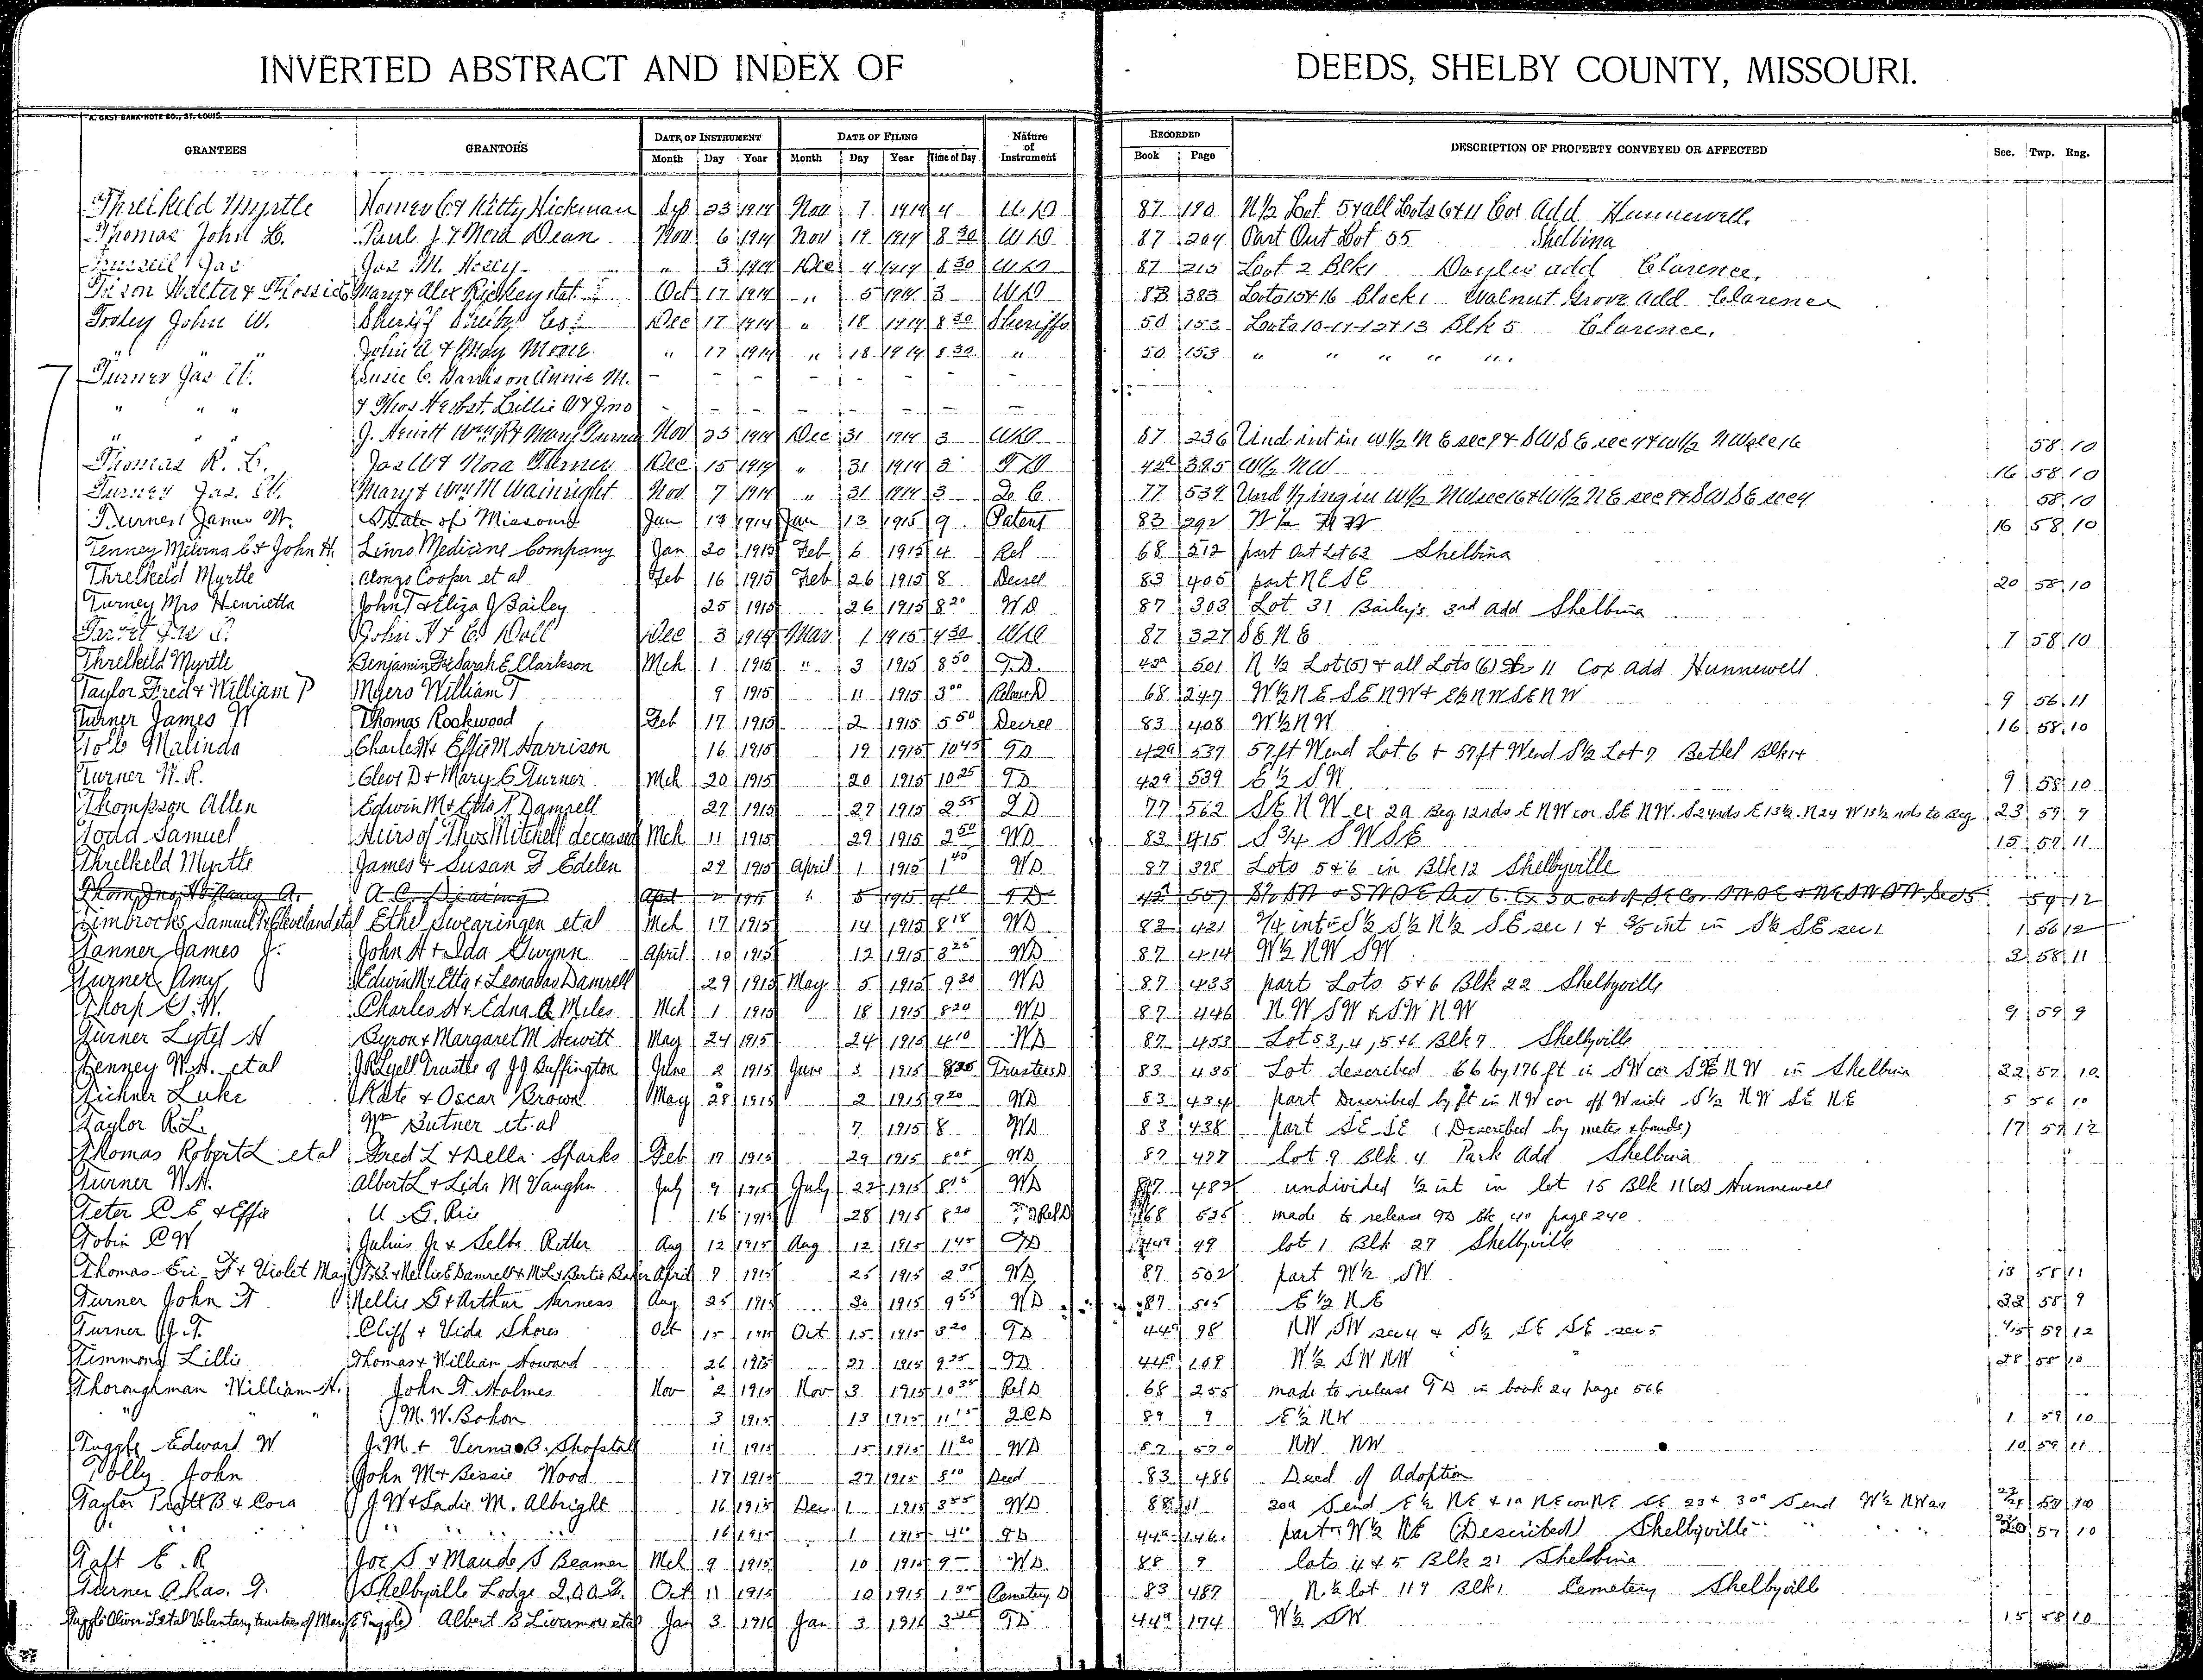 INVERTED ABSTRACT AND INDEX OF DEEDS, SHELBY COUNTY, MISSOURI.
A. GAST BANK NOTE CO., ST. LOUIS.
GRANTEES GRANTORS DATE OF INSTRUMENT DATE OF FILING Nature of Instrument RECORDED DESCRIPTION OF PROPERTY CONVEYED OR AFFECTED Sec. Twp. Rng.
Month Day Year Month Day Year Time of Day Book Page
Threlkeld Myrtle Homer C & Kitty Hickman Sep 23 1914 Nov 7 1914 4 W D 87 190 N 1/2 Lot 5 & all Lots 6 & 11 Cox Add Hunnewell.
Thomas John L. Paul J & Nora Dean Nov 6 1914 Nov 19 1914 8 30 W D 87 204 Part Out Lot 55 Shelbina
Jas M. " 3 1914 Dec 4 1914 8 30 W D 87 215 Lot 2 Blk 1 Doyles add Clarence.
Walter & Mary & Alex Rickey et al Oct 17 1914 " 5 1914 3 W D 83 383 Lots 15 & 16 Block 1 Walnut Grove Add Clarence
John W. Sheriff Dec 17 1914 " 18 1914 8 30 Sheriffs 50 153 Lots 10-11-12 & 13 Blk 5 Clarence.
John A & May Moore " 17 1914 " 18 1914 8 30 " 50 153 " " " " "
Turner Jas W. Susie C. Harrison Annie M. - - - - - - - -
" " " & Thos Herbst. Lillie V & Jno - - - - - - - -
" " " J. Hewitt Wm R & Mary Turner Nov 25 1914 Dec 31 1914 3 W D 87 236 Und int in W 1/2 N E sec 9 & S W S E sec 4 & W 1/2 N W sec 16 58 10
Thomas R. L. Jas W & Nora Turner Dec 15 1914 " 31 1914 3 T D 42a 385 W 1/2 N W 16 58 10
Turner Jas. W. Mary & Wm M Wainright Nov 7 1914 " 31 1914 3 2 C 77 539 Und 1/7 int in W 1/2 N W sec 16 & W 1/2 N E sec 9 & S W S E sec 4 58 10
Turner James W. State of Missouri Jan 13 1914 Jan 13 1915 9 Patent 83 292 W 1/2 N W 16 58 10
Tenney Melvina C & John H. Linro Medicine Company Jan 20 1915 Feb 6 1915 4 Rel 68 212 part Out Lot 62 Shelbina
Threlkeld Myrtle Alonzo Cooper et al Feb 16 1915 Feb 26 1915 8 Decree 83 405 part N E S E 20 58 10
Turney Mrs Henrietta John T & Eliza J Bailey 25 1915 26 1915 8 20 W D 87 303 Lot 31 Bailey's 3rd add Shelbina
John H & Doll Dec 3 1914 Mar 1 1915 4 30 W D 87 327 S E N E 7 58 10
Threlkeld Myrtle Benjamin F & Sarah E Clarkson Mch 1 1915 " 3 1915 8 50 T. D. 42a 501 N 1/2 Lot (5) & all Lots (6) & 11 Cox add Hunnewell
Taylor Fred & William P Myers William T 9 1915 11 1915 3 00 Release D 68 247 W 1/2 N E - S E N W & E 1/2 N W S E N W 9 56 11
Turner James W Thomas Rookwood Feb 17 1915 2 1915 5 50 Decree 83 408 W 1/2 N W 16 58 10
Malinda Charles W & Effie M Harrison 16 1915 19 1915 10 45 T D 42a 537 57 ft W end Lot 6 & 57 ft W end S 1/2 Lot 7 Bethel Blk 14
Turner W. R. Cleve D & Mary C Turner Mch 20 1915 20 1915 10 25 T D 42a 539 E 1/2 S W 9 58 10
Thompson Allen Edwin M & Etta P Damrell 27 1915 27 1915 2 55 Q D 77 562 S E N W ex 2a Beg 12 rds E N W cor S E N W. S 24 rds E 13 1/2. N 24 W 13 1/2 rds to Beg 23 59 9
Todd Samuel Heirs of Thos Mitchell deceased Mch 11 1915 29 1915 2 50 WD 83 415 S 3/4 S W S E 15 57 11
Threlkeld Myrtle James & Susan F Edelen 29 1915 April 1 1915 1 40 WD 87 398 Lots 5 & 6 in Blk 12 Shelbyville
A C Dearing April 2 1915 " 5 1915 T D 42a 557 59 12
Timbrooks Samuel & Cleveland et al Ethel Swearingen et al Mch 17 1915 14 1915 8 18 WD 83 421 int S 1/2 S 1/2 N 1/2 S E sec 1 & int in S 1/2 S E sec 1 1 56 12
Tanner James J. John H & Ida Gwynn April 10 1915 12 1915 3 25 WD 87 414 W 1/2 N W S W 2 58 11
Turner Amy Edwin M & Etta & Leonadas Damrell 29 1915 May 5 1915 9 30 WD 87 433 part Lots 5 & 6 Blk 22 Shelbyville
Thorp G. W. Charles H & Edna A Miles Mch 1 1915 18 1915 8 20 WD 87 446 N W S W & S W N W 9 59 9
Turner Lytel H Byron & Margaret M Hewitt May 24 1915 24 1915 4 10 WD 87 453 Lots 3, 4, 5 & 6 Blk 7 Shelbyville
Tenney W. A. et al J R Lyell Trustee of J J Buffington June 2 1915 June 3 1915 8 35 Trustees D 83 435 Lot described 66 by 176 ft in S W cor S E N W in Shelbina 32 57 10
Tickner Luke Kate & Oscar Brown May 28 1915 2 1915 9 20 WD 83 434 part Described by ft in N W cor off W side S 1/2 N W S E N E 5 56 10
Taylor R. L. Wm Butner et al 7 1915 8 WD 83 438 part S E S E (Described by metes & bounds) 17 57 12
Thomas Robert L et al Fred L & Della Sparks Feb 19 1915 29 1915 8 05 WD 87 477 lot 9 Blk 4 Park Add Shelbina
Turner W. H. Albert L & Lida M Vaughn July 9 1915 July 22 1915 8 15 WD 87 482 undivided 1/2 int in lot 15 Blk 11 Hunnewell
Teter C E & Effie U. G. Rice 16 1915 28 1915 8 20 Rel D 68 made to release T D bk 40 page 240
Tobin C W Julius Jr & Selba Ritter Aug 12 1915 Aug 12 1915 1 45 T D 44a 49 lot 1 Blk 27 Shelbyville
Thomas Eri F & Violet May & Nellie E Damrell & M L & Bertie Baker April 7 1915 25 1915 2 35 WD 87 502 part W 1/2 S W 13 58 11
Turner John F Nellie G & Arthur Aug 25 1915 30 1915 9 55 WD 87 505 E 1/2 N E 22 58 9
Turner J. T. Cliff & Vida Shores Oct 15 1915 Oct 15 1915 8 20 T D 44a 98 N W S W sec 4 & S 1/2 S E S E sec 5 4/5 59 12
Timmons Lillie Thomas & William Howard 26 1915 27 1915 9 25 T D 44a 109 W 1/2 S W N W 58 10
Thoroughman William H. John F. Holmes Nov 2 1915 Nov 3 1915 10 35 Rel D 68 255 made to release T D in book 24 page 566
" " J. M. W. Bohon 3 1915 13 1915 11 15 Q C D 89 9 E 1/2 N W 1 59 10
Tuggle Edward W J. M. & Verma B. Shofstall 11 1915 15 1915 11 30 WD 87 570 N W N W 10 59 11
Tolly John John M & Bessie Wood 17 1915 27 1915 8 10 Deed 83 486 Deed of Adoption
Taylor Pratt B. & Cora J. W & Sadie M. Albright 16 1915 Dec 1 1915 3 55 WD 88 11 20a S end E 1/2 N E & 1a N E cor N E S E 23 & 30a S end W 1/2 N W 24 23/24 58 10
" " " " " 16 1915 1 1915 4 10 T D 44a 146 part W 1/2 N E (Described) Shelbyville 57 10
Taft E. R. Joe S & Maude S Beamer Mch 9 1915 10 1915 9 - WD 88 9 lots 4 & 5 Blk 21 Shelbina
Turner Chas. F. Shelbyville Lodge I. O. O. F. Oct 11 1915 10 1915 1 35 Cemetery D 83 487 N. 1/2 lot 119 Blk 1 Cemetery Shelbyville
Tuggle Oliver L et al Voluntary trustees of Mary E Tuggle) Albert B Livermore et al Jan 3 1916 Jan 3 1916 3 45 T D 44a 174 W 1/2 S W 15 58 10